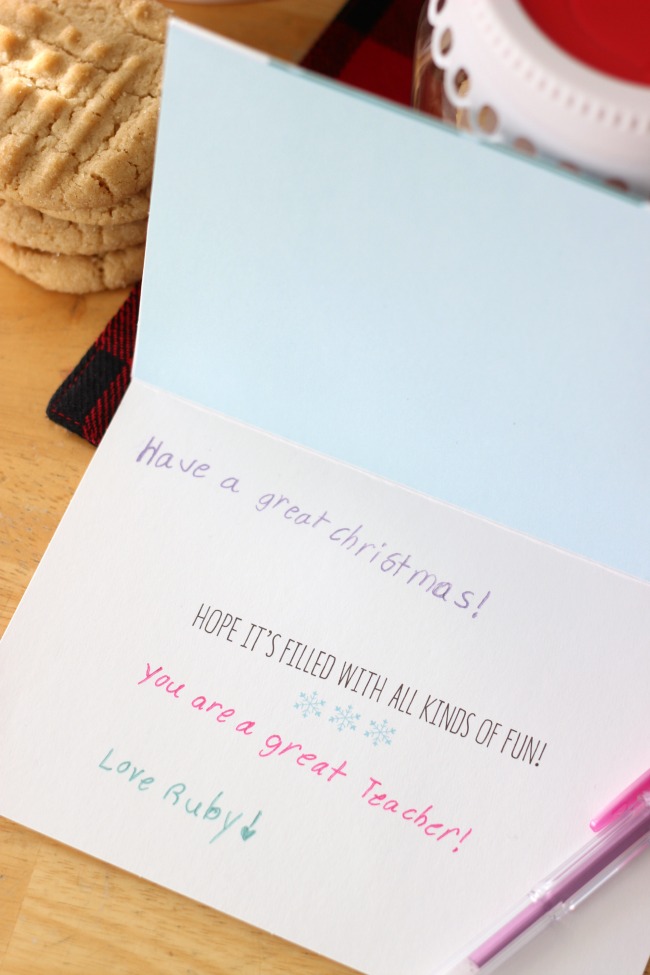 Have a great christmas!
HOPE IT'S FILLED WITH ALL KINDS OF FUN!
You are a great Teacher!
Love Ruby!